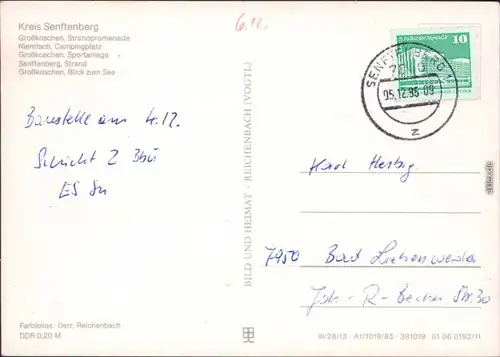 Kreis Senftenberg
Großkoschen, Strandpromenade
Niemtsch, Campingplatz
Großkoschen, Sportanlage
Senftenberg, Strand
Großkoschen, Blick zum See
6.12.
10
SENFTENBERG 1
05.12.86 09
Z
Baustelle am 4.12.
Schicht 2
BILD UND HEIMAT · REICHENBACH (VOGTL)
7950 Bad Liebenwerda
Joh - R - Becher Str. 30
Farbfotos: Darr, Reichenbach
DDR 0,20 M
III/26/13 · A1/1019/85 · 381019 01 06 0192/11